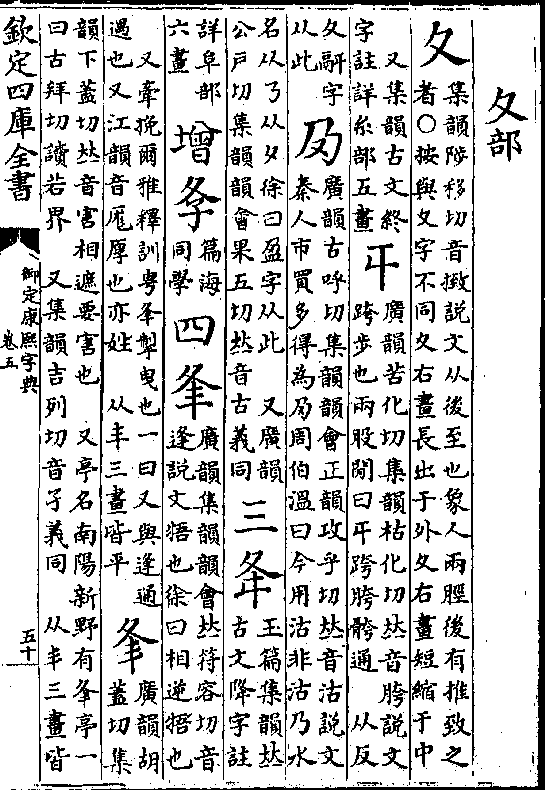 夂部
夂
集韻陟移切音㨖說文从後至也象人兩脛後有推致之
者○按與夊字不同夊右畫長出于外夂右畫短縮于中
又集韻古文終
字註詳糸部五畫
㐄
廣韻苦化切集韻枯化切𠀤音胯說文
跨步也兩股閒曰㐄跨胯骻通 从反
夂字
从此
夃
廣韻古呼切集韻韻會正韻攻乎切𠀤音沽說文
秦人市買多得為夃周伯溫曰今用沽非沽乃水
名从乃从夂徐曰盈字从此 又廣韻
公戶切集韻韻會果五切𠀤音古義同
三
夅
玉篇集韻𠀤
古文降字註
詳阜部
六畫
增
篇海
同學
四
夆
廣韻集韻韻會𠀤符容切音
逢說文牾也徐曰相逆牾也
又牽挽爾雅釋訓甹夆掣曳也一曰又與逢通
過也又江韻音厖厚也亦姓 从丰三畫皆平
夆
廣韻胡
蓋切集
韻下蓋切𠀤音害相遮要害也 又亭名南陽新野有夆亭一
曰古拜切讀若界 又集韻吉列切音孑義同 从丯三畫皆
欽定四庫全書
御定康熙字典
卷五
五十